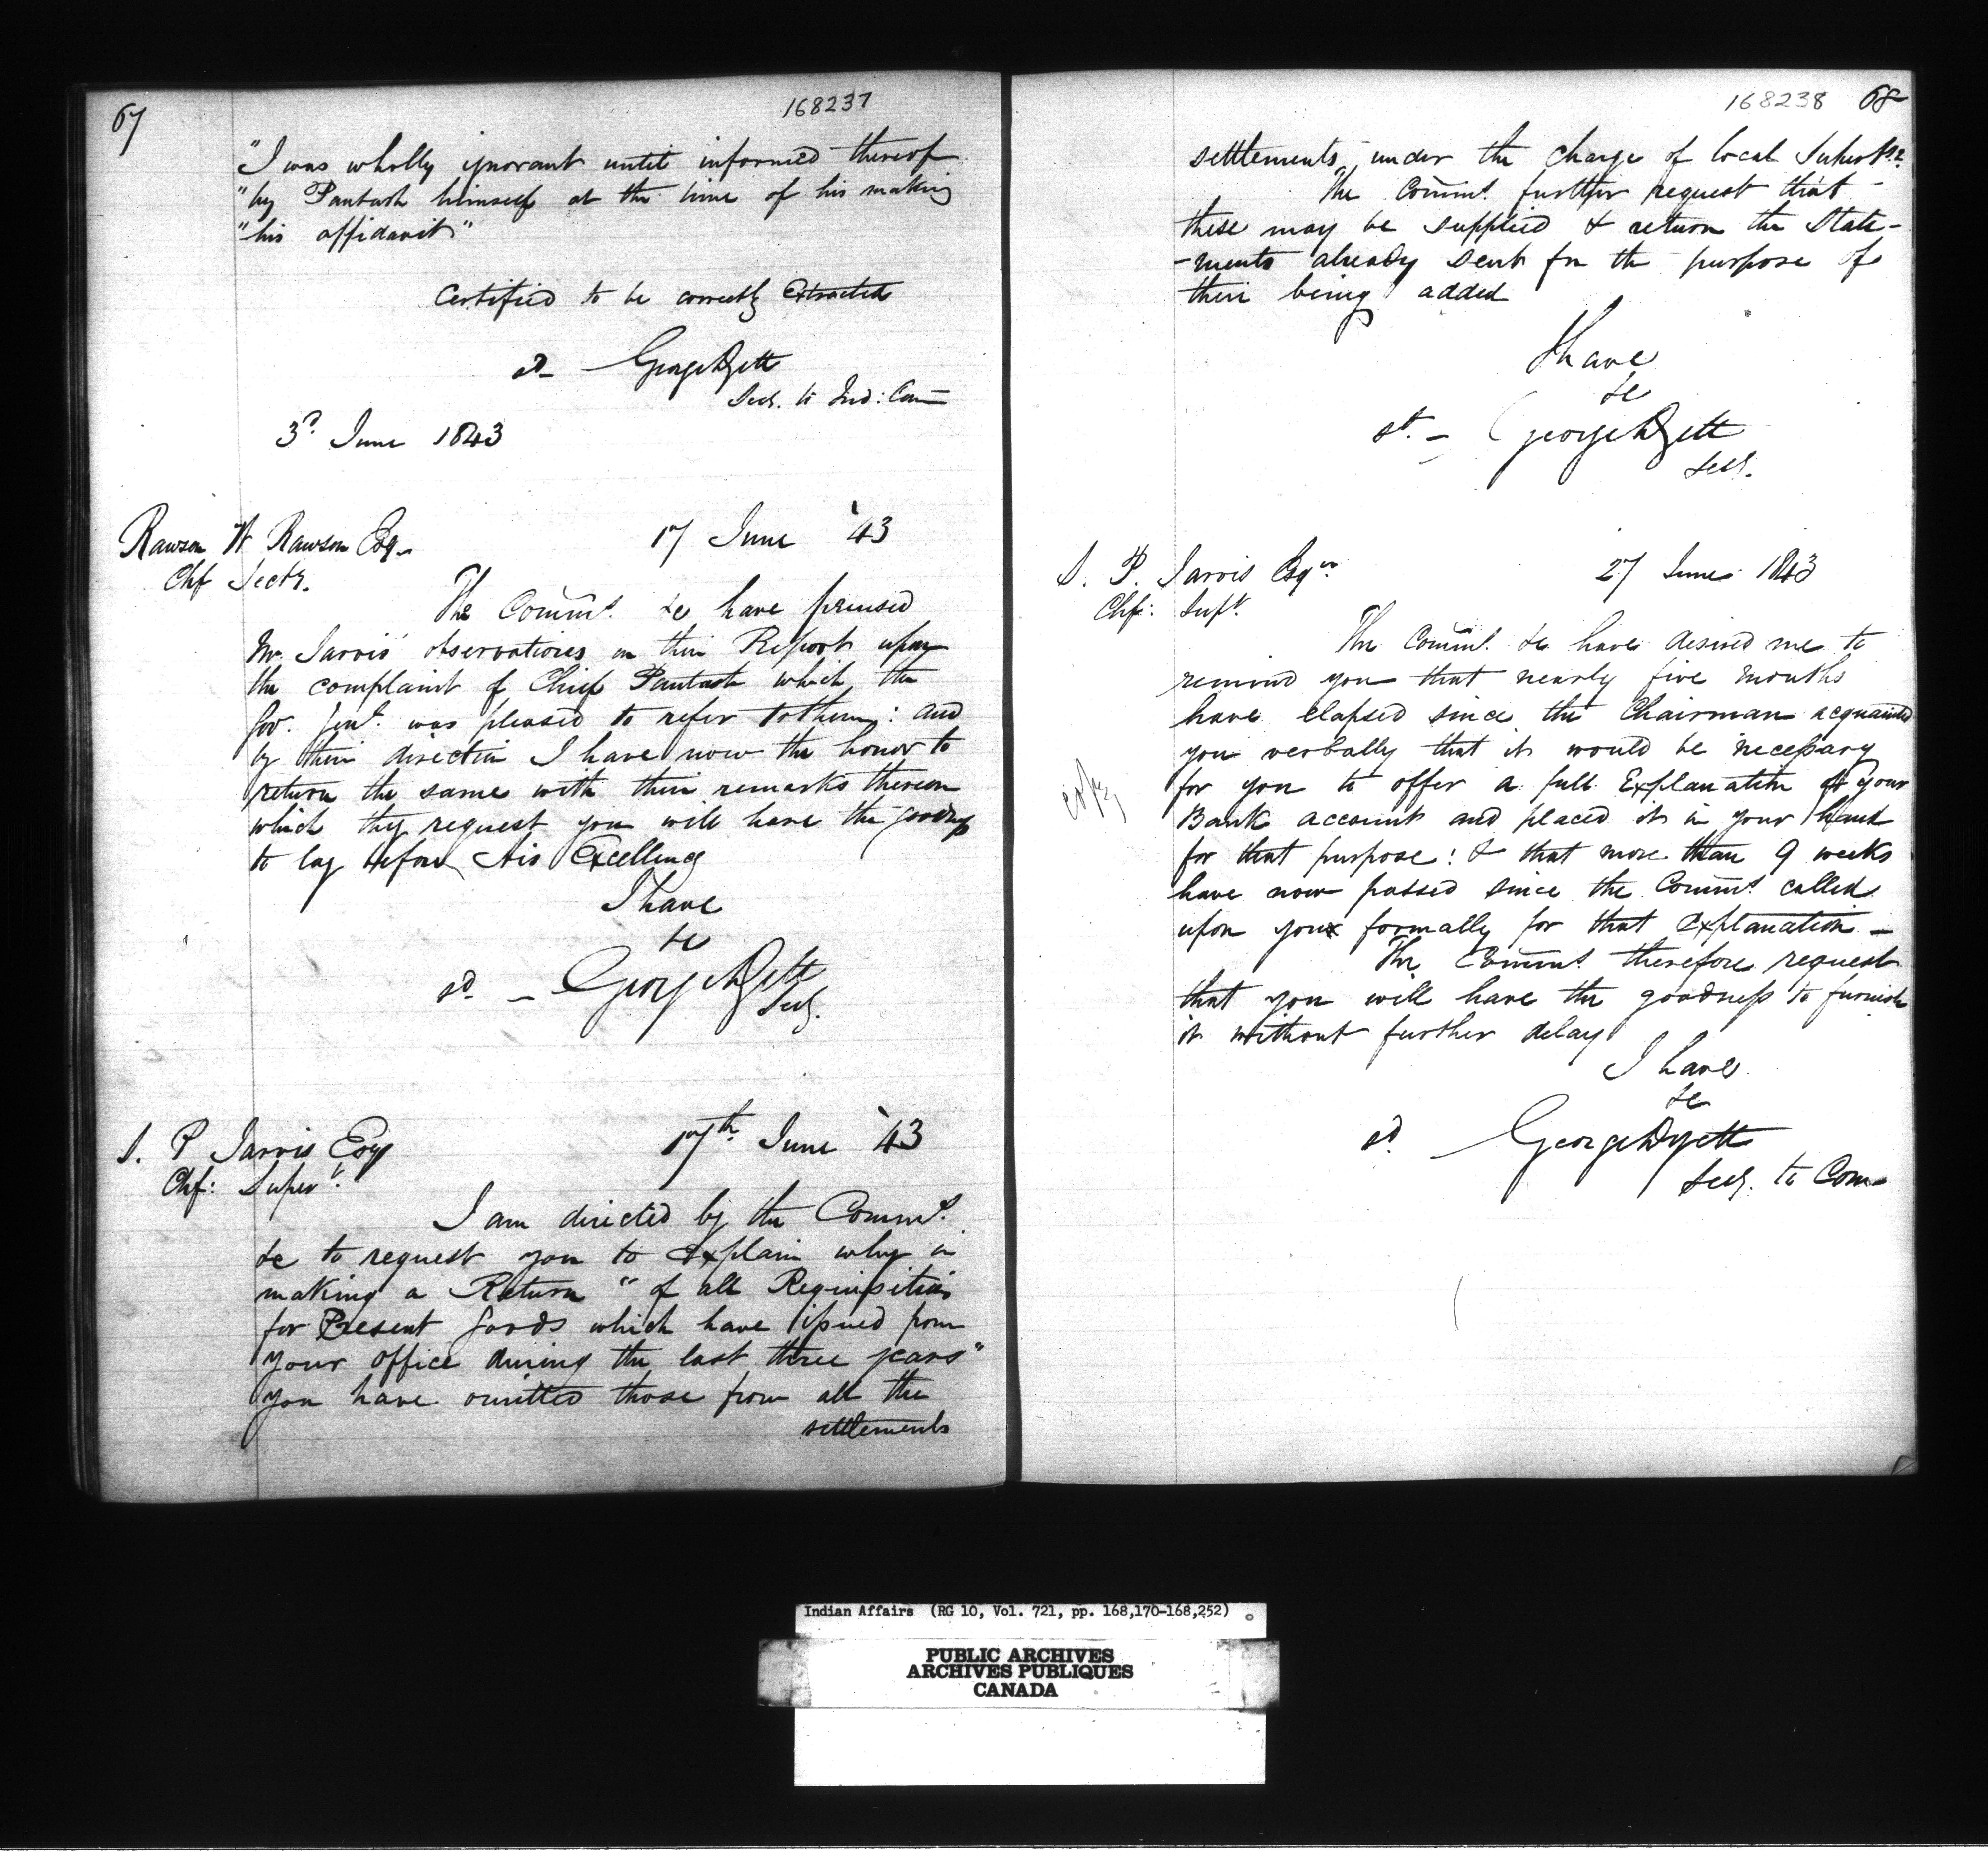 67
168237
"I was wholly ignorant until informed thereof
"by Pautash himself at the time of his making
"his affidavit"
Certified to be correctly Extracted
sd - George Dyett
Secy. to Ind: Com
3d June 1843
Rawson W Rawson Esq. 17 June '43
Chf Secty.
The Commrs. &c have perused
Mr Jarvis' observations on their Report upon
the complaint of Chief Pautash which the
Gov. Genl. was pleased to refer to them: and
by their direction I have now the honor to
return the same with their remarks thereon
which they request you will have the goodness
to lay before His Excellency
I have
&c
sd - George Dyett
Secy.
S. P Jarvis Esq 17th June '43
Chf: Supert.
I am directed by the Commrs.
&c to request you to Explain why in
making a Return "of all Requisitions
for Present Goods which have issued from
your office during the last three years"
you have omitted those from all the
settlements
168238 68
settlements, under the charge of local
The Commrs. further request that
these may be supplied & return the State-
-ments already sent for the purpose of
their being added
I have
&c
sd. - George Dyett
Secy.
S. P. Jarvis Esqr. 27 June 1843
Chf: Supt.
The Commrs. &c have desired me to
remind you that nearly five months
have elapsed since the Chairman acquainted
you verbally that it would be necessary
for you to offer a full Explanation of your
Bank account and placed it in your hand
for that purpose: & that more than 9 weeks
have now passed since the Commrs called
upon you formally for that Explanation -
The Commrs therefore request
that you will have the goodness to furnish
it without further delay
I have
&c
sd. George Dyett
Secy. to Com
copy
Indian Affairs (RG 10, Vol. 721, pp. 168,170-168,252)
PUBLIC ARCHIVES
ARCHIVES PUBLIQUES
CANADA